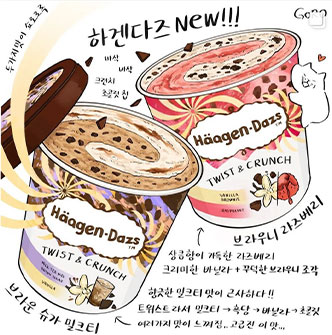 하겐다즈 NEW!!!
두가지맛이 소용돌이
바삭
바삭
크런치
초콜릿 칩
Häagen-Dazs
TWIST & CRUNCH
VANILLA
BROWNIE
RASPBERRY
Häagen-Dazs
TWIST & CRUNCH
VANILLA
브라우니 라즈베리
상큼함이 가득한 라즈베리
크리미한 바닐라 + 꾸덕한 브라우니 조각
브라운 슈가 밀크티
향긋한 밀크티 맛이 근사하다!!
트위스트라서 밀크티 → 흑당 → 바닐라 → 초콜릿
여러가지 맛이 느껴짐.. 고급진 이 맛...